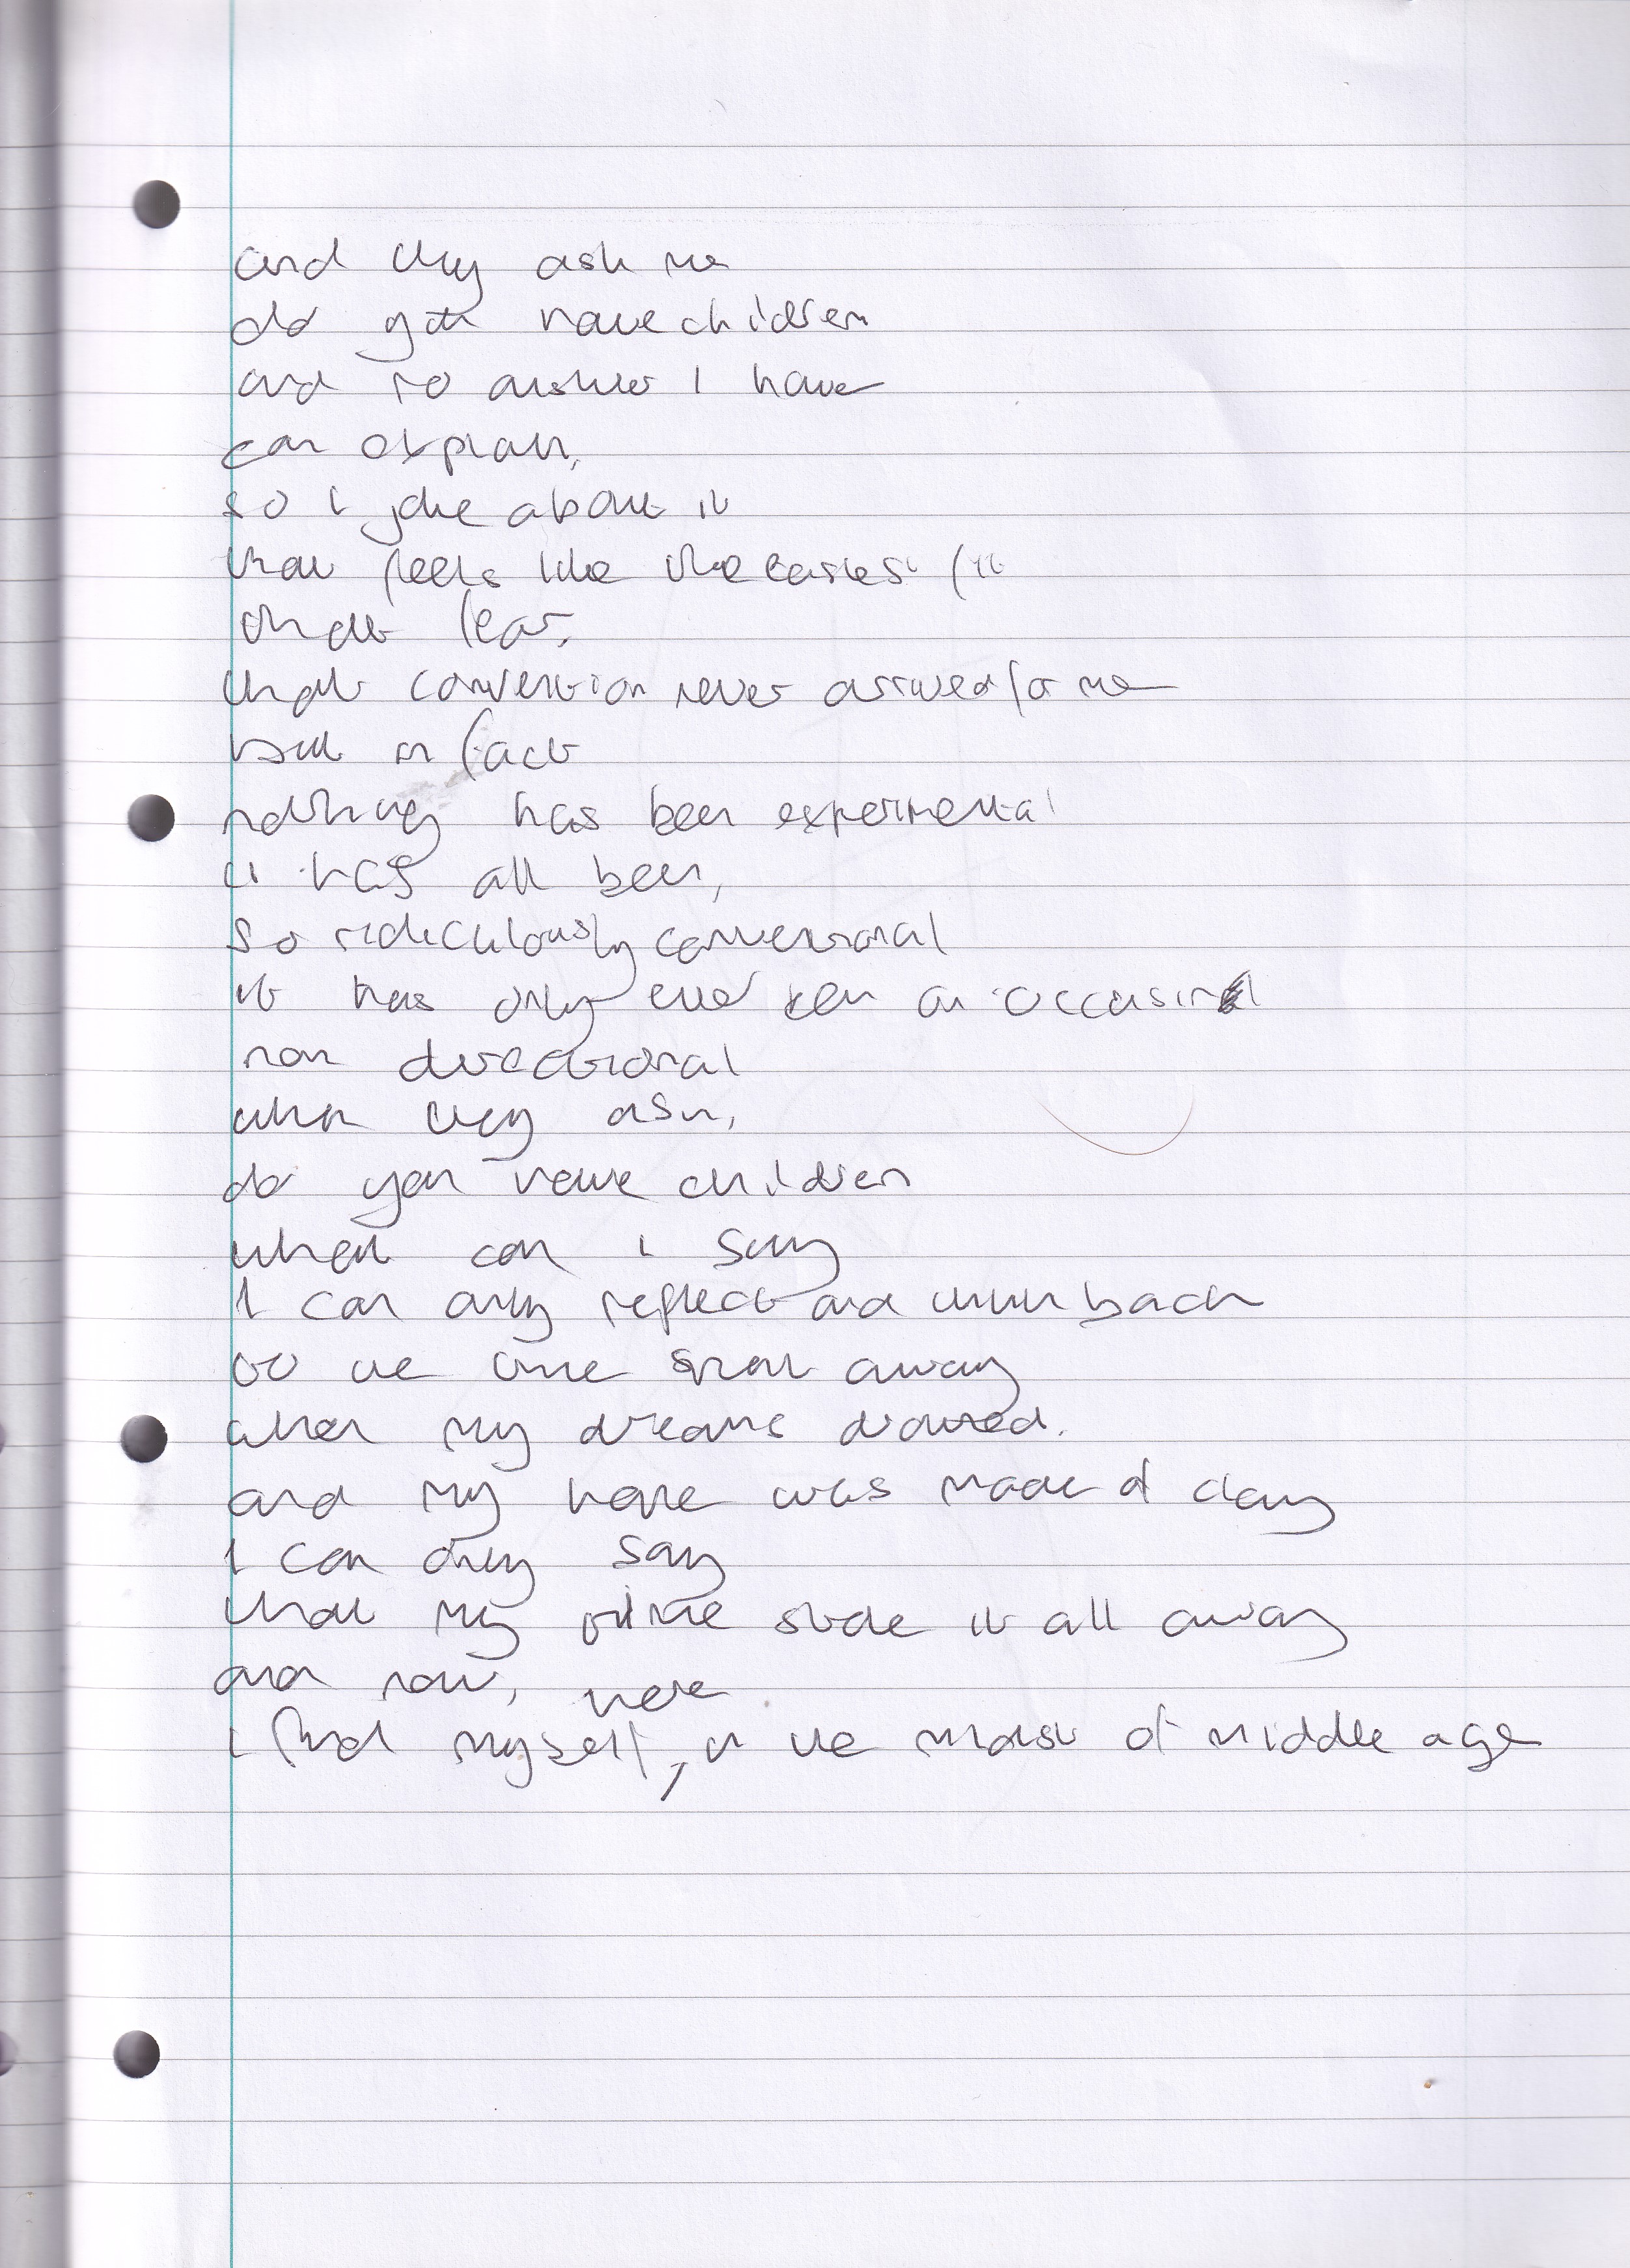 and they ask me
do you have children
and no answer I have
can explain,
so i joke about it
that feels like the easiest fit
that fear,
that convention never arrived for me
but in fact
nothing has been experimental
it has all been,
so ridiculously conventional
it has only ever been an occasional
non directional
when they ask,
do you have children
what can i say
I can only reflect and think back
to the time away
when my dreams
and my hope was made of clay
I can only say
that my prime stole it all away
and now, here
i find myself, in the midst of middle age